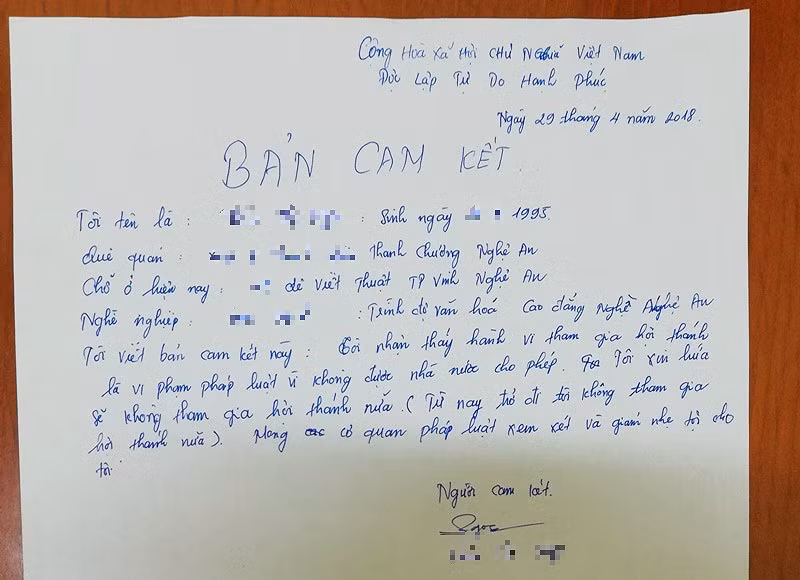 Cộng Hoà Xã Hội Chủ Nghĩa Việt Nam
Độc Lập Tự Do Hạnh Phúc
Ngày 29 tháng 4 năm 2018.
BẢN CAM KẾT
Tôi tên là : : Sinh ngày 1995.
Quê quán : Thanh Chương Nghệ An
Chỗ ở hiện nay : Lê Viết Thuật TP Vinh Nghệ An
Nghề nghiệp : : Trình độ văn hoá Cao đẳng Nghề Nghệ An
Tôi viết bản cam kết này : Tôi nhận thấy hành vi tham gia hội thánh
là vi phạm pháp luật vì không được nhà nước cho phép. Tôi xin hứa
sẽ không tham gia hội thánh nữa. (Từ nay trở đi tôi không tham gia
hội thánh nữa). Mong cơ quan pháp luật xem xét và giảm nhẹ tội cho
tôi
Người cam kết.
Ngọc